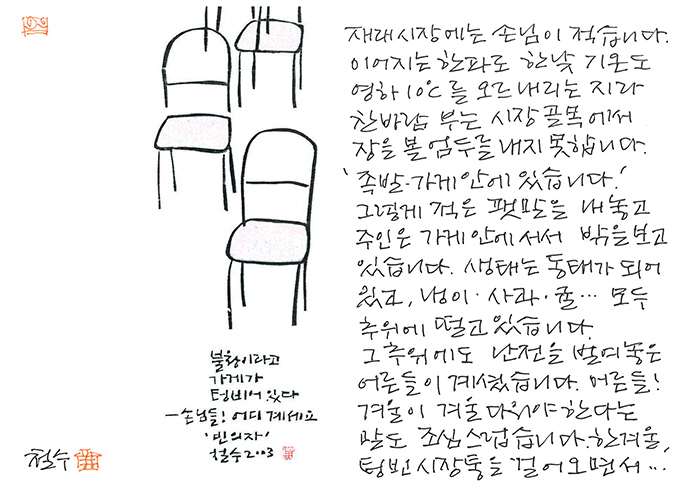 재래시장에는 손님이 적습니다.
이어지는 한파로 한낮 기온도
영하 10℃를 오르내리는 지라
찬바람 부는 시장 골목에서
장을 볼 엄두를 내지 못합니다.
'족발·가게안에 있습니다.'
그렇게 적은 팻말을 내놓고
주인은 가게안에 서서 밖을 보고
있습니다. 생태는 동태가 되어
있고, 냉이·사과·귤… 모두
추위에 떨고 있습니다.
그 추위에도 난전을 벌여놓은
어른들이 계셨습니다. 어른들!
겨울이 겨울다워야 한다는
말도 조심스럽습니다. 한겨울,
텅빈 시장통을 걸어오면서…
불황이라고
가게가
텅비어 있다
―손님들! 어디 계세요
'빈의자'
철수 2003
철수